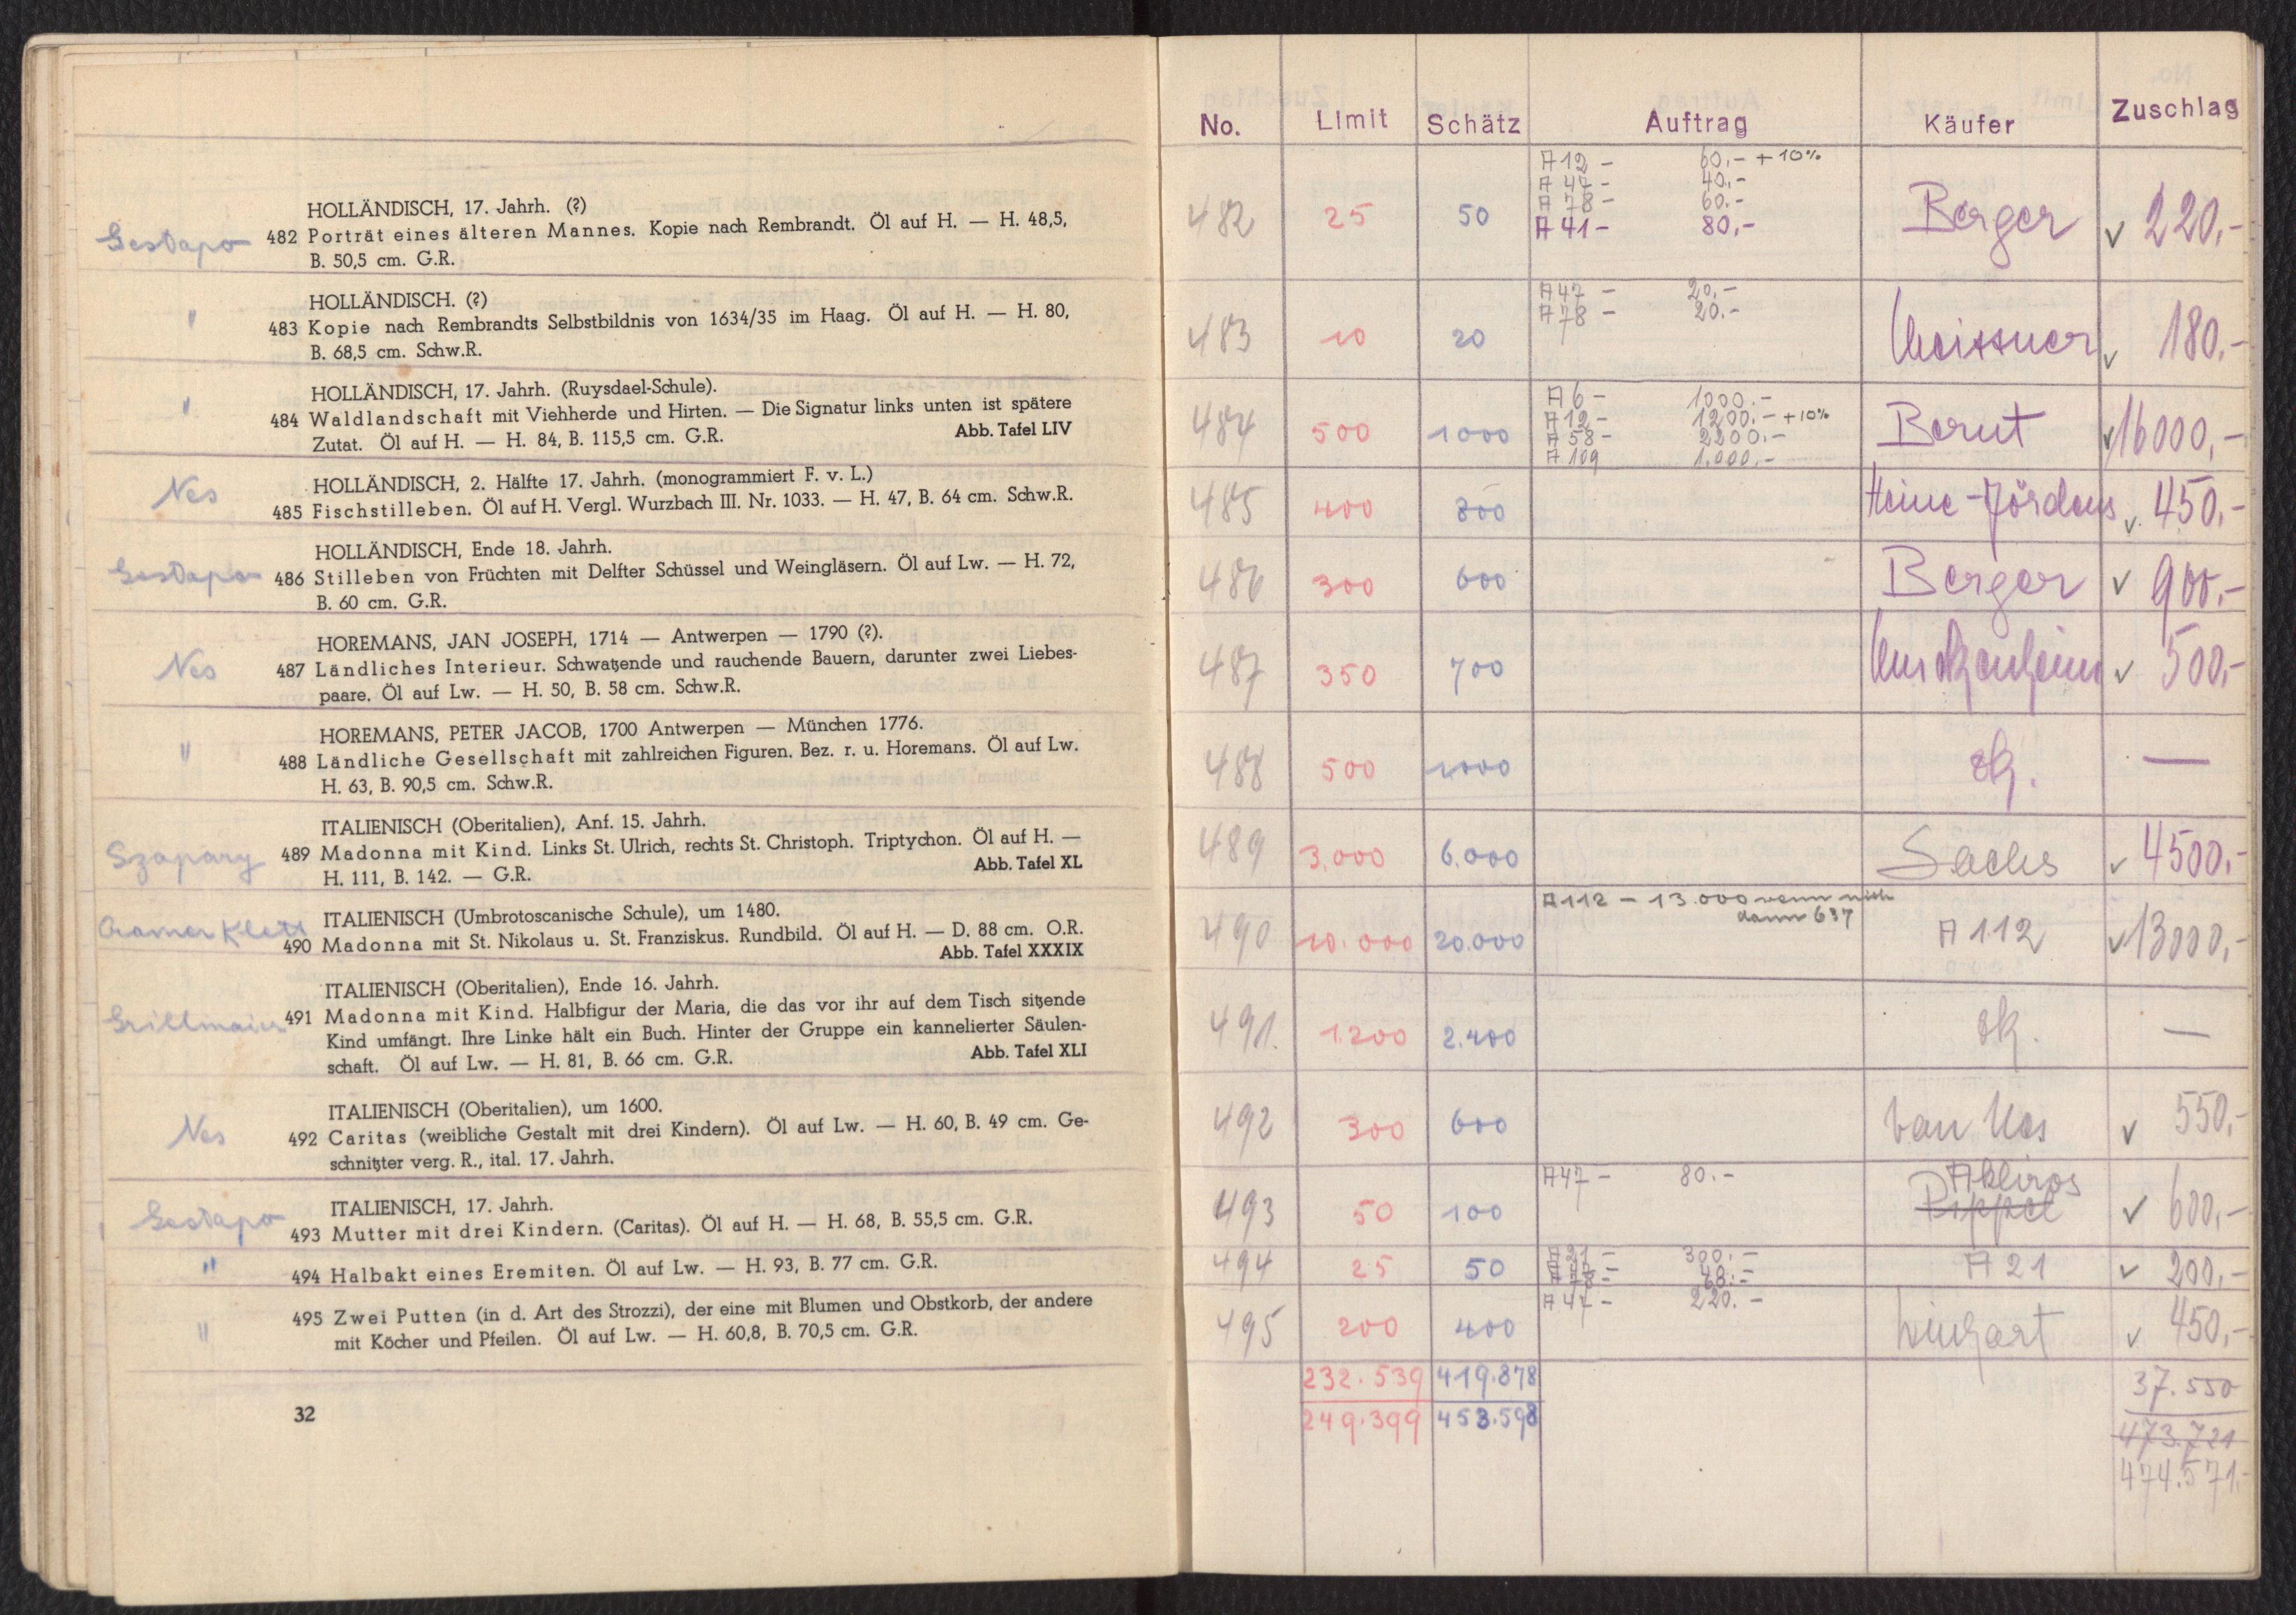 HOLLÄNDISCH, 17. Jahrh. (?)
Gestapo 482 Porträt eines älteren Mannes. Kopie nach Rembrandt. Öl auf H. — H. 48,5,
B. 50,5 cm. G.R.
HOLLÄNDISCH. (?)
" 483 Kopie nach Rembrandts Selbstbildnis von 1634/35 im Haag. Öl auf H. — H. 80,
B. 68,5 cm. Schw.R.
HOLLÄNDISCH, 17. Jahrh. (Ruysdael-Schule).
" 484 Waldlandschaft mit Viehherde und Hirten. — Die Signatur links unten ist spätere
Zutat. Öl auf H. — H. 84, B. 115,5 cm. G.R. Abb. Tafel LIV
HOLLÄNDISCH, 2. Hälfte 17. Jahrh. (monogrammiert F. v. L.)
Nes 485 Fischstilleben. Öl auf H. Vergl. Wurzbach III. Nr. 1033. — H. 47, B. 64 cm. Schw.R.
HOLLÄNDISCH, Ende 18. Jahrh.
Gestapo 486 Stilleben von Früchten mit Delfter Schüssel und Weingläsern. Öl auf Lw. — H. 72,
B. 60 cm. G.R.
HOREMANS, JAN JOSEPH, 1714 — Antwerpen — 1790 (?).
Nes 487 Ländliches Interieur. Schwatzende und rauchende Bauern, darunter zwei Liebes-
paare. Öl auf Lw. — H. 50, B. 58 cm. Schw.R.
HOREMANS, PETER JACOB, 1700 Antwerpen — München 1776.
" 488 Ländliche Gesellschaft mit zahlreichen Figuren. Bez. r. u. Horemans. Öl auf Lw.
H. 63, B. 90,5 cm. Schw.R.
ITALIENISCH (Oberitalien), Anf. 15. Jahrh.
Szapary 489 Madonna mit Kind. Links St. Ulrich, rechts St. Christoph. Triptychon. Öl auf H. —
H. 111, B. 142. — G.R. Abb. Tafel XL
ITALIENISCH (Umbrotoscanische Schule), um 1480.
Cramer Klett 490 Madonna mit St. Nikolaus u. St. Franziskus. Rundbild. Öl auf H. — D. 88 cm. O.R.
Abb. Tafel XXXIX
ITALIENISCH (Oberitalien), Ende 16. Jahrh.
Grillmaier 491 Madonna mit Kind. Halbfigur der Maria, die das vor ihr auf dem Tisch sitzende
Kind umfängt. Ihre Linke hält ein Buch. Hinter der Gruppe ein kannelierter Säulen-
schaft. Öl auf Lw. — H. 81, B. 66 cm. G.R. Abb. Tafel XLI
ITALIENISCH (Oberitalien), um 1600.
Nes 492 Caritas (weibliche Gestalt mit drei Kindern). Öl auf Lw. — H. 60, B. 49 cm. Ge-
schnitzter verg. R., ital. 17. Jahrh.
ITALIENISCH, 17. Jahrh.
Gestapo 493 Mutter mit drei Kindern. (Caritas). Öl auf H. — H. 68, B. 55,5 cm. G.R.
" 494 Halbakt eines Eremiten. Öl auf Lw. — H. 93, B. 77 cm. G.R.
" 495 Zwei Putten (in d. Art des Strozzi), der eine mit Blumen und Obstkorb, der andere
mit Köcher und Pfeilen. Öl auf Lw. — H. 60,8, B. 70,5 cm. G.R.
32
No. Limit Schätz Auftrag Käufer Zuschlag
A 12 - 60,- + 10%
A 47 - 40,-
A 78 - 60.-
482 25 50 A 41 - 80,- Berger ✓ 220,-
A 47 - 20,-
A 78 - 20.-
483 10 20 Meissner ✓ 180,-
A 6 - 1000.-
A 12 - 1200.- + 10%
484 500 1000 A 58 - 2200.- Bernt ✓ 16000,-
A 109 1.000,-
485 400 800 Heine-Jördens ✓ 450,-
486 300 600 Berger ✓ 900,-
487 350 700 ✓ 500,-
488 500 1000 —
489 3.000 6.000 Sachs ✓ 4500,-
A 112 - 13.000 wenn nicht
dann 637
490 10.000 20.000 A 112 ✓ 13000,-
491. 1.200 2.400 —
492 300 600 van Nes ✓ 550,-
A 47 - 80.-
493 50 100 Rippel ✓ 600,-
494 25 50 A 21 - 300.- A 21 ✓ 200,-
A 47 - 220.-
495 200 400 ✓ 450,-
232.539 419.878 37.550
249.399 453.598 473.721
474.571.-